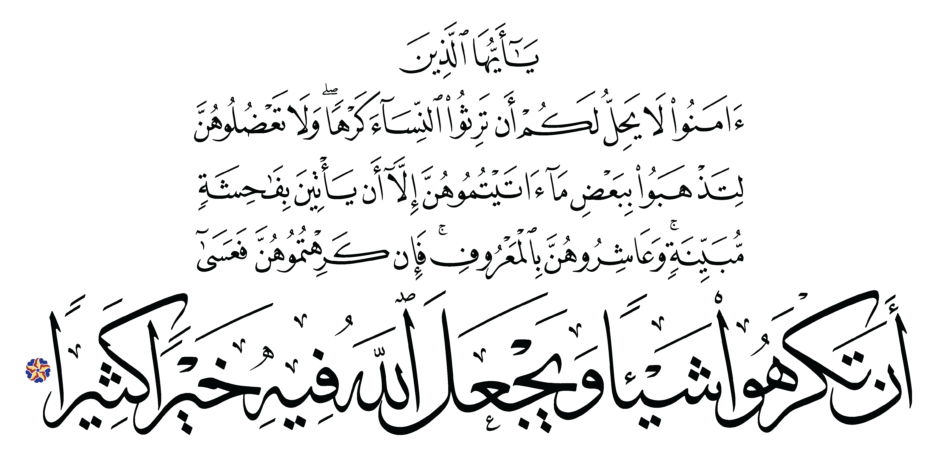 يَـٰٓأَيُّهَا ٱلَّذِينَ
ءَامَنُوا۟ لَا يَحِلُّ لَكُمْ أَن تَرِثُوا۟ ٱلنِّسَآءَ كَرْهًا ۖ وَلَا تَعْضُلُوهُنَّ
لِتَذْهَبُوا۟ بِبَعْضِ مَآ ءَاتَيْتُمُوهُنَّ إِلَّآ أَن يَأْتِينَ بِفَـٰحِشَةٍ
مُّبَيِّنَةٍ ۚ وَعَاشِرُوهُنَّ بِٱلْمَعْرُوفِ ۚ فَإِن كَرِهْتُمُوهُنَّ فَعَسَىٰٓ
أَن تَكْرَهُوا۟ شَيْـًٔا وَيَجْعَلَ ٱللَّهُ فِيهِ خَيْرًا كَثِيرًا